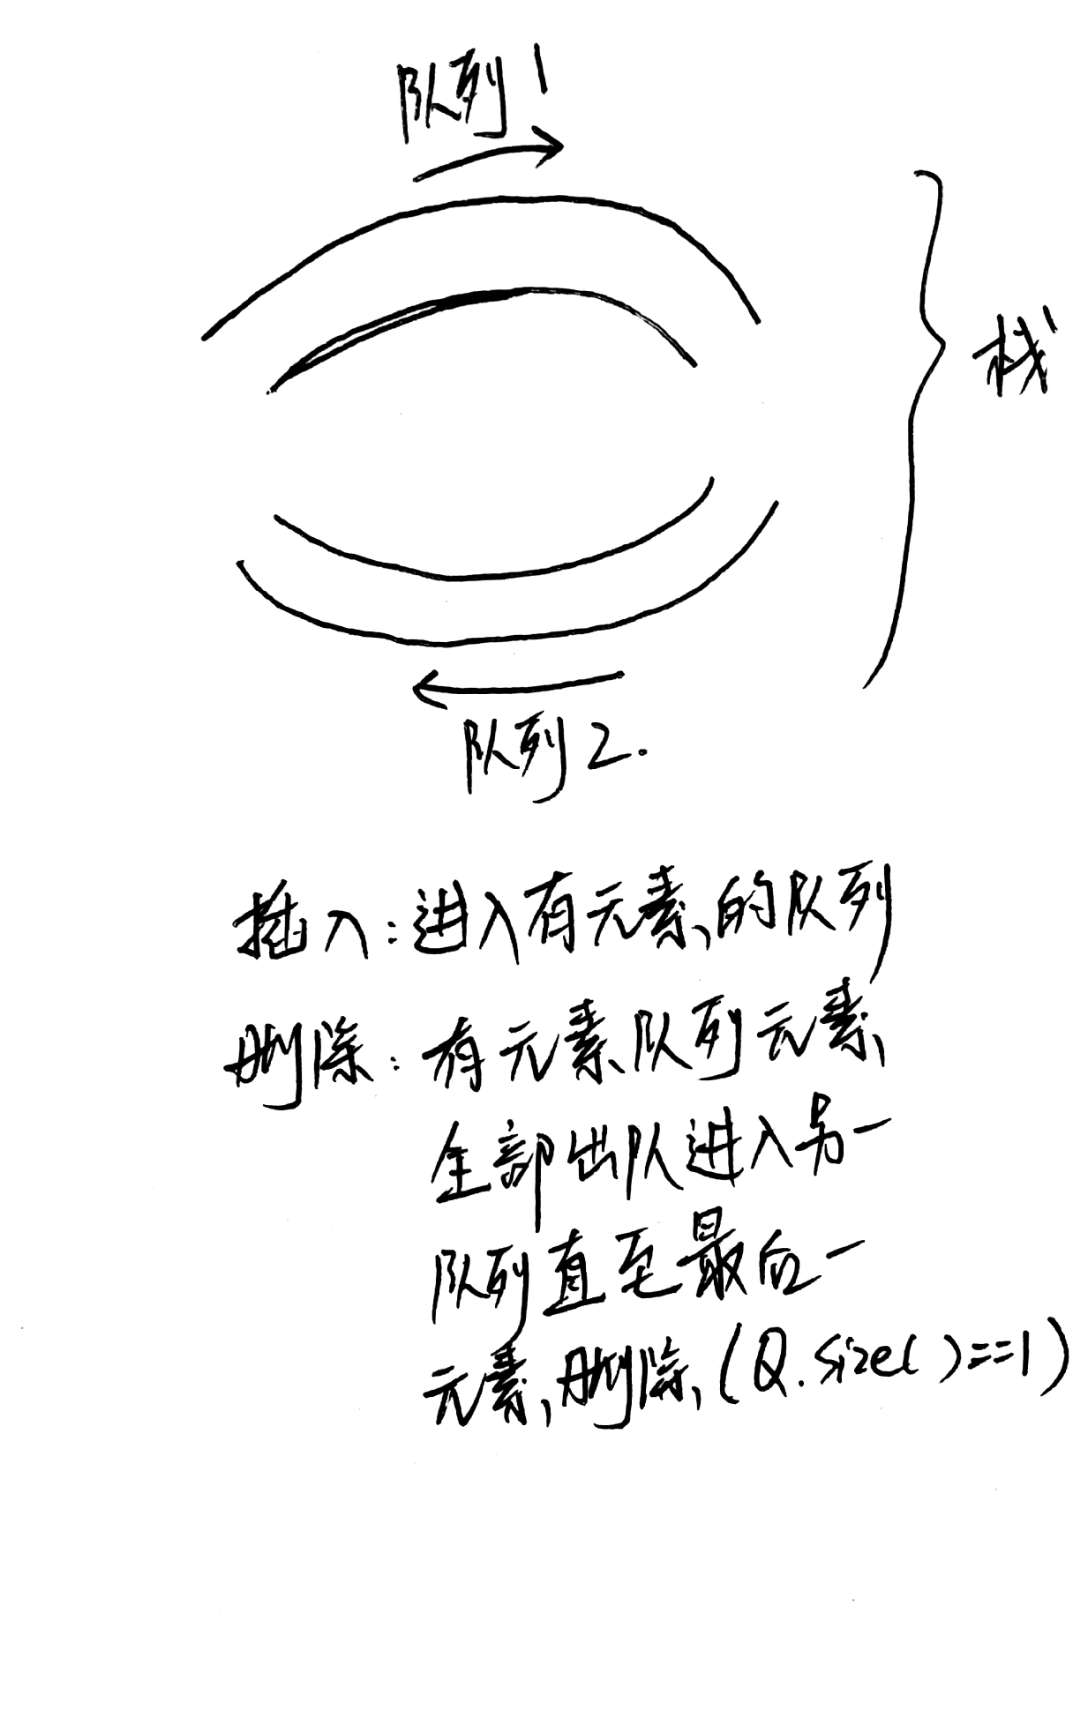 队列1
栈
队列2.
插入:进入有元素的队列
删除:有元素队列元素
全部出队进入另一
队列直至最后一
元素,删除,(Q.size()==1)